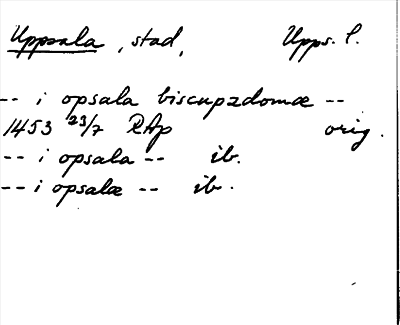 Uppsala, stad, Upps. l.
-- i opsala biscupzdomæ --
1453 23/7 RAp orig.
-- i opsala -- ib.
-- i opsalæ -- ib.